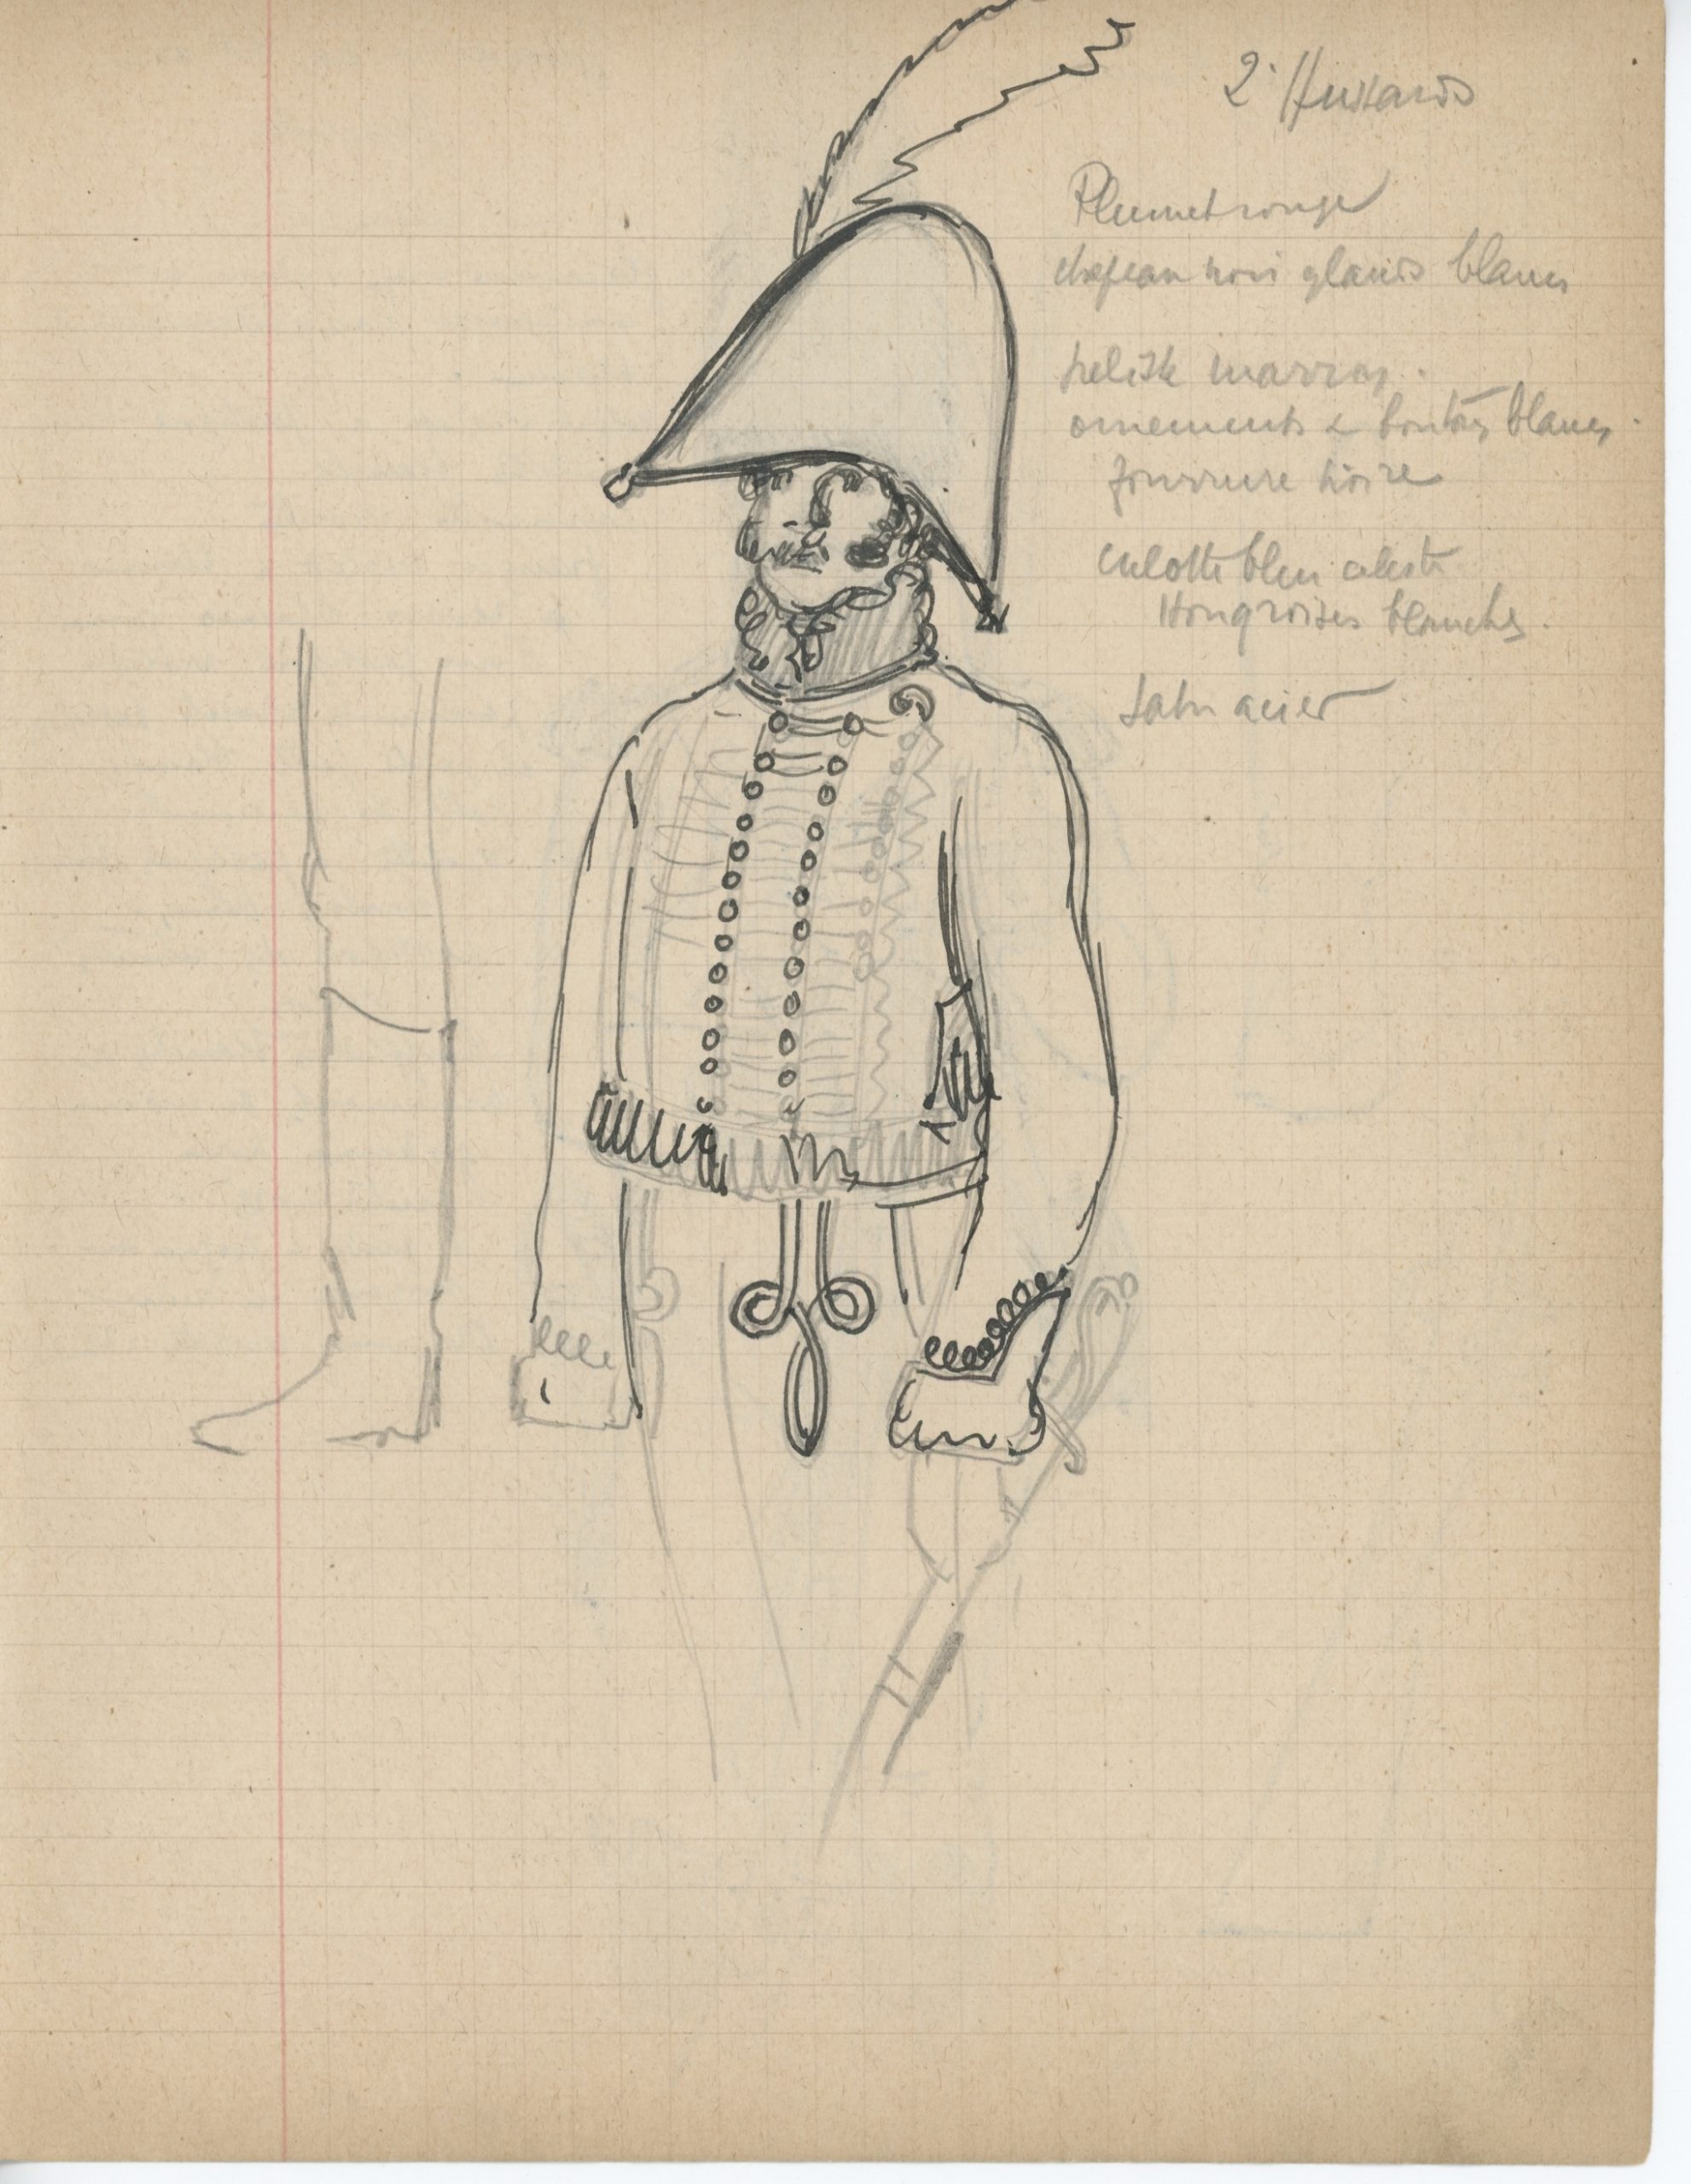 2e Hussards
Plumet rouge
chapeau noir glands blancs
pelisse marron.
ornements & boutons blancs.
fourrure noire
culotte bleu celeste
Hongroises blanches.
sabre acier